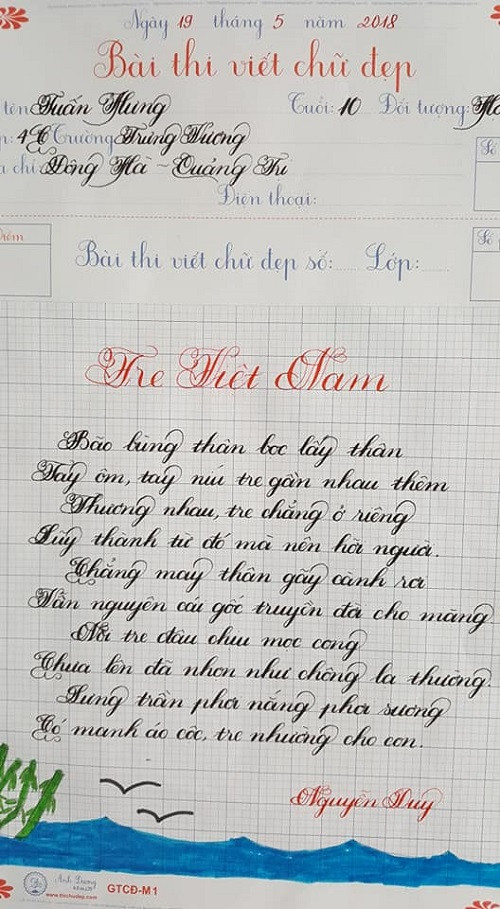 Ngày 19 tháng 5 năm 2018
Bài thi viết chữ đẹp
tên Tuấn Hưng Tuổi: 10 Đối tượng:
4C Trường Trưng Vương
chỉ Đông Hà - Quảng Trị
Điện thoại:
Điểm
Bài thi viết chữ đẹp số: Lớp:
Tre Việt Nam
Bão bùng thân bọc lấy thân
Tay ôm, tay níu tre gần nhau thêm
Thương nhau, tre chẳng ở riêng
Lũy thành từ đó mà nên hỡi người.
Chẳng may thân gãy cành rơi
Vẫn nguyên cái gốc truyền đời cho măng
Nòi tre đâu chịu mọc cong
Chưa lên đã nhọn như chông lạ thường.
Lưng trần phơi nắng phơi sương
Có manh áo cộc, tre nhường cho con.
Nguyễn Duy
Ánh Dương
GTCĐ-M1